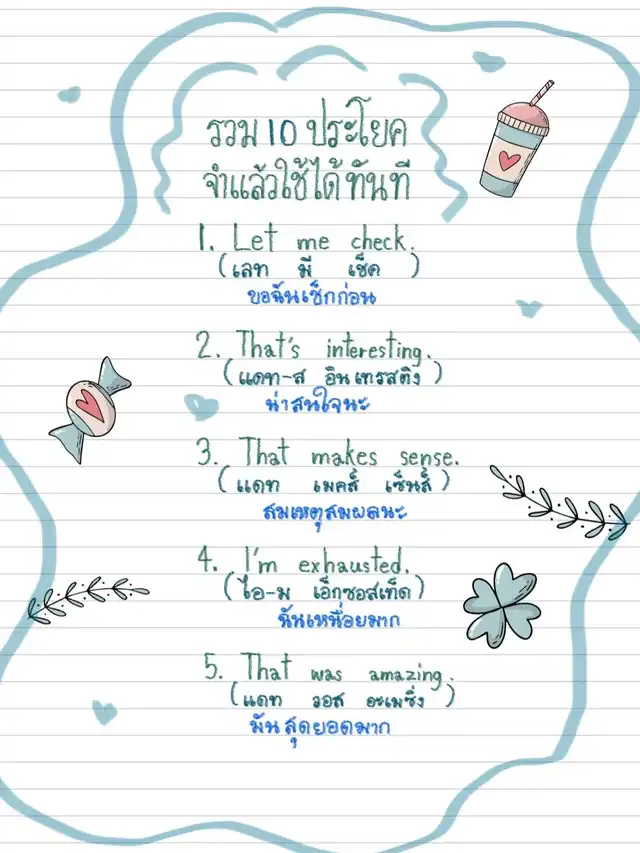 รวม 10 ประโยค
จำแล้วใช้ได้ทันที
1. Let me check.
(เลท มี เช็ค)
ขอฉันเช็กก่อน
2. That's interesting.
(แดท-ส อินเทรสติง)
น่าสนใจนะ
3. That makes sense.
(แดท เมคส์ เซ็นส์)
สมเหตุสมผลนะ
4. I'm exhausted.
(ไอ-ม เอ็กซอสเท็ด)
ฉันเหนื่อยมาก
5. That was amazing.
(แดท วอส อะเมซิ่ง)
มันสุดยอดมาก